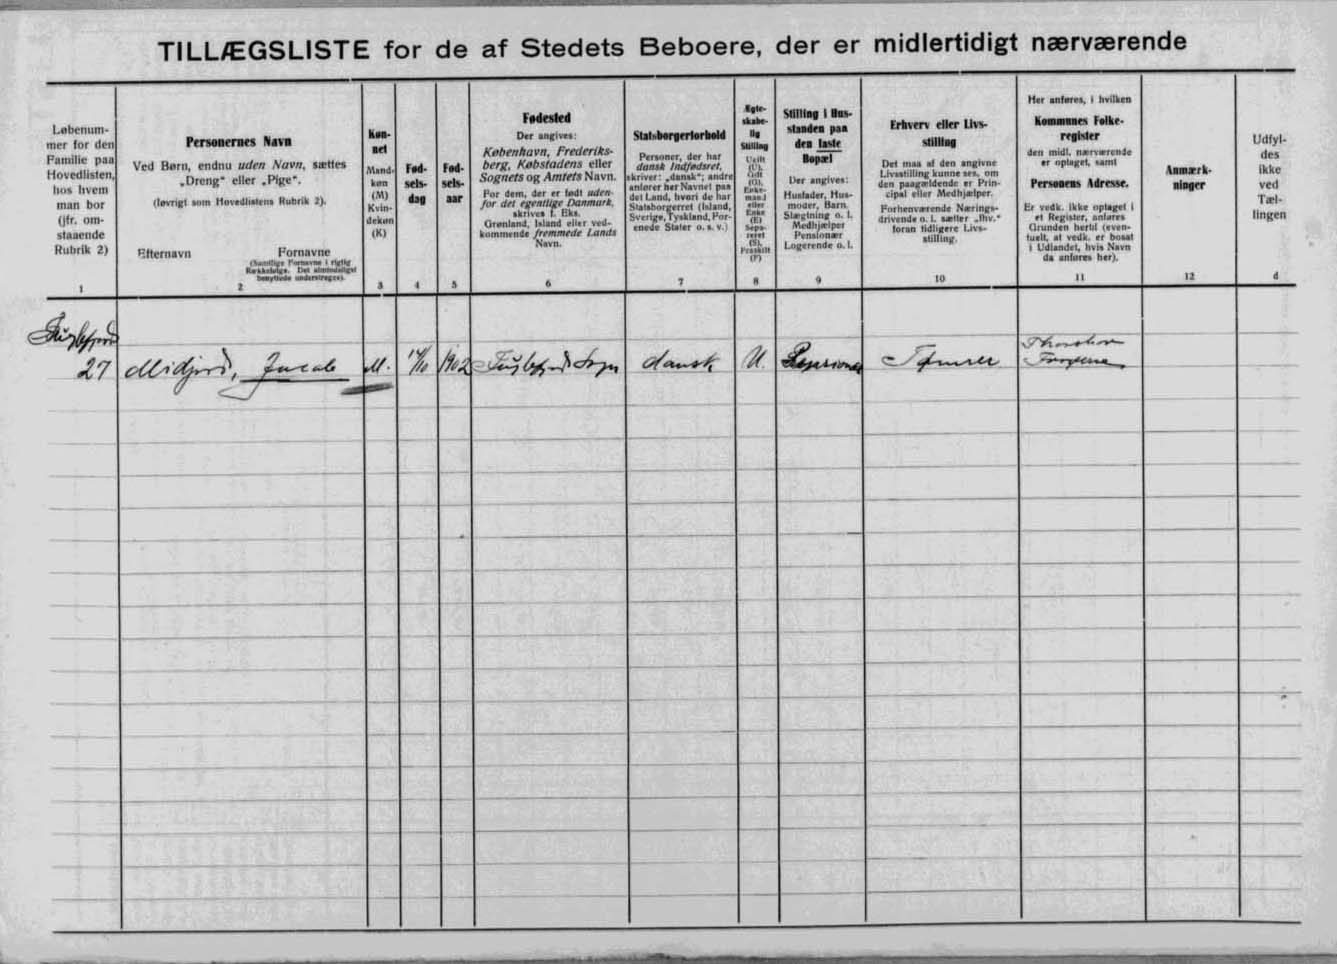 TILLÆGSLISTE for de af Stedets Beboere, der er midlertidigt nærværende
Løbenum-
mer for den
Familie paa
Hovedlisten,
hos hvem
man bor
(jfr. om-
staaende
Rubrik 2)
1
Personernes Navn
Ved Børn, endnu uden Navn, sættes
„Dreng" eller „Pige".
(Iøvrigt som Hovedlistens Rubrik 2).
Efternavn Fornavne
(Samtlige Fornavne i rigtig
Rækkefølge. Det almindeligst
benyttede understreges).
2
Køn-
net
Mand-
køn
(M)
Kvin-
dekøn
(K)
3
Fød-
sels-
dag
4
Fød-
sels-
aar
5
Fødested
Der angives:
København, Frederiks-
berg, Købstadens eller
Sognets og Amtets Navn.
For dem, der er født uden-
for det egentlige Danmark,
skrives f. Eks.
Grønland, Island eller ved-
kommende fremmede Lands
Navn.
6
Statsborgerforhold
Personer, der har
dansk Indfødsret,
skriver: „dansk"; andre
anfører her Navnet paa
det Land, hvori de har
Statsborgerret (Island,
Sverige, Tyskland, For-
enede Stater o. s. v.)
7
Ægte-
skabe-
lig
Stilling
Ugift
(U),
Gift
(G),
Enke-
mand
eller
Enke
(E)
Sepa-
reret
(S),
Fraskilt
(F)
8
Stilling i Hus-
standen paa
den faste
Bopæl
Der angives:
Husfader, Hus-
moder, Barn,
Slægtning o. l.
Medhjælper
Pensionær
Logerende o. l.
9
Erhverv eller Livs-
stilling
Det maa af den angivne
Livsstilling kunne ses, om
den paagældende er Prin-
cipal eller Medhjælper.
Forhenværende Nærings-
drivende o. l. sætter „fhv."
foran tidligere Livs-
stilling.
10
Her anføres, i hvilken
Kommunes Folke-
register
den midl. nærværende
er optaget, samt
Personens Adresse.
Er vedk. ikke optaget i
et Register, anføres
Grunden hertil (even-
tuelt, at vedk. er bosat
i Udlandet, hvis Navn
da anføres her).
11
Anmærk-
ninger
12
Udfyl-
des
ikke
ved
Tæl-
lingen
d
Fuglefjord
27 Midjord, Jacob M. 14/10 1902 Fuglefjord Sogn dansk U. Pensionær Tømrer Thorshavn
Færøerne